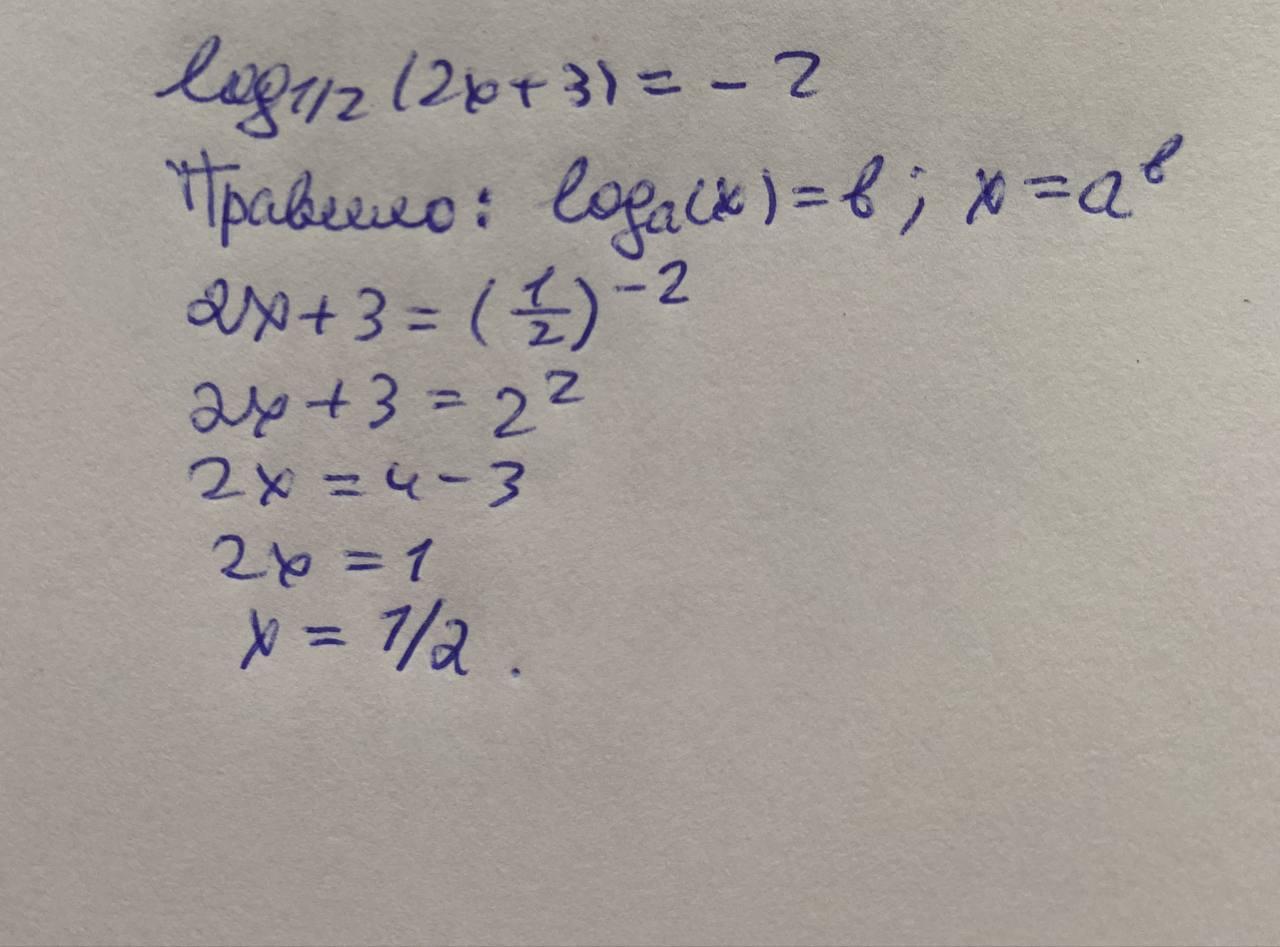 log₁/₂ (2x+3) = - 2
Правило: logₐ(x) = b; x = aᵇ
2x + 3 = (1/2)⁻²
2x + 3 = 2²
2x = 4 - 3
2x = 1
x = 1/2.